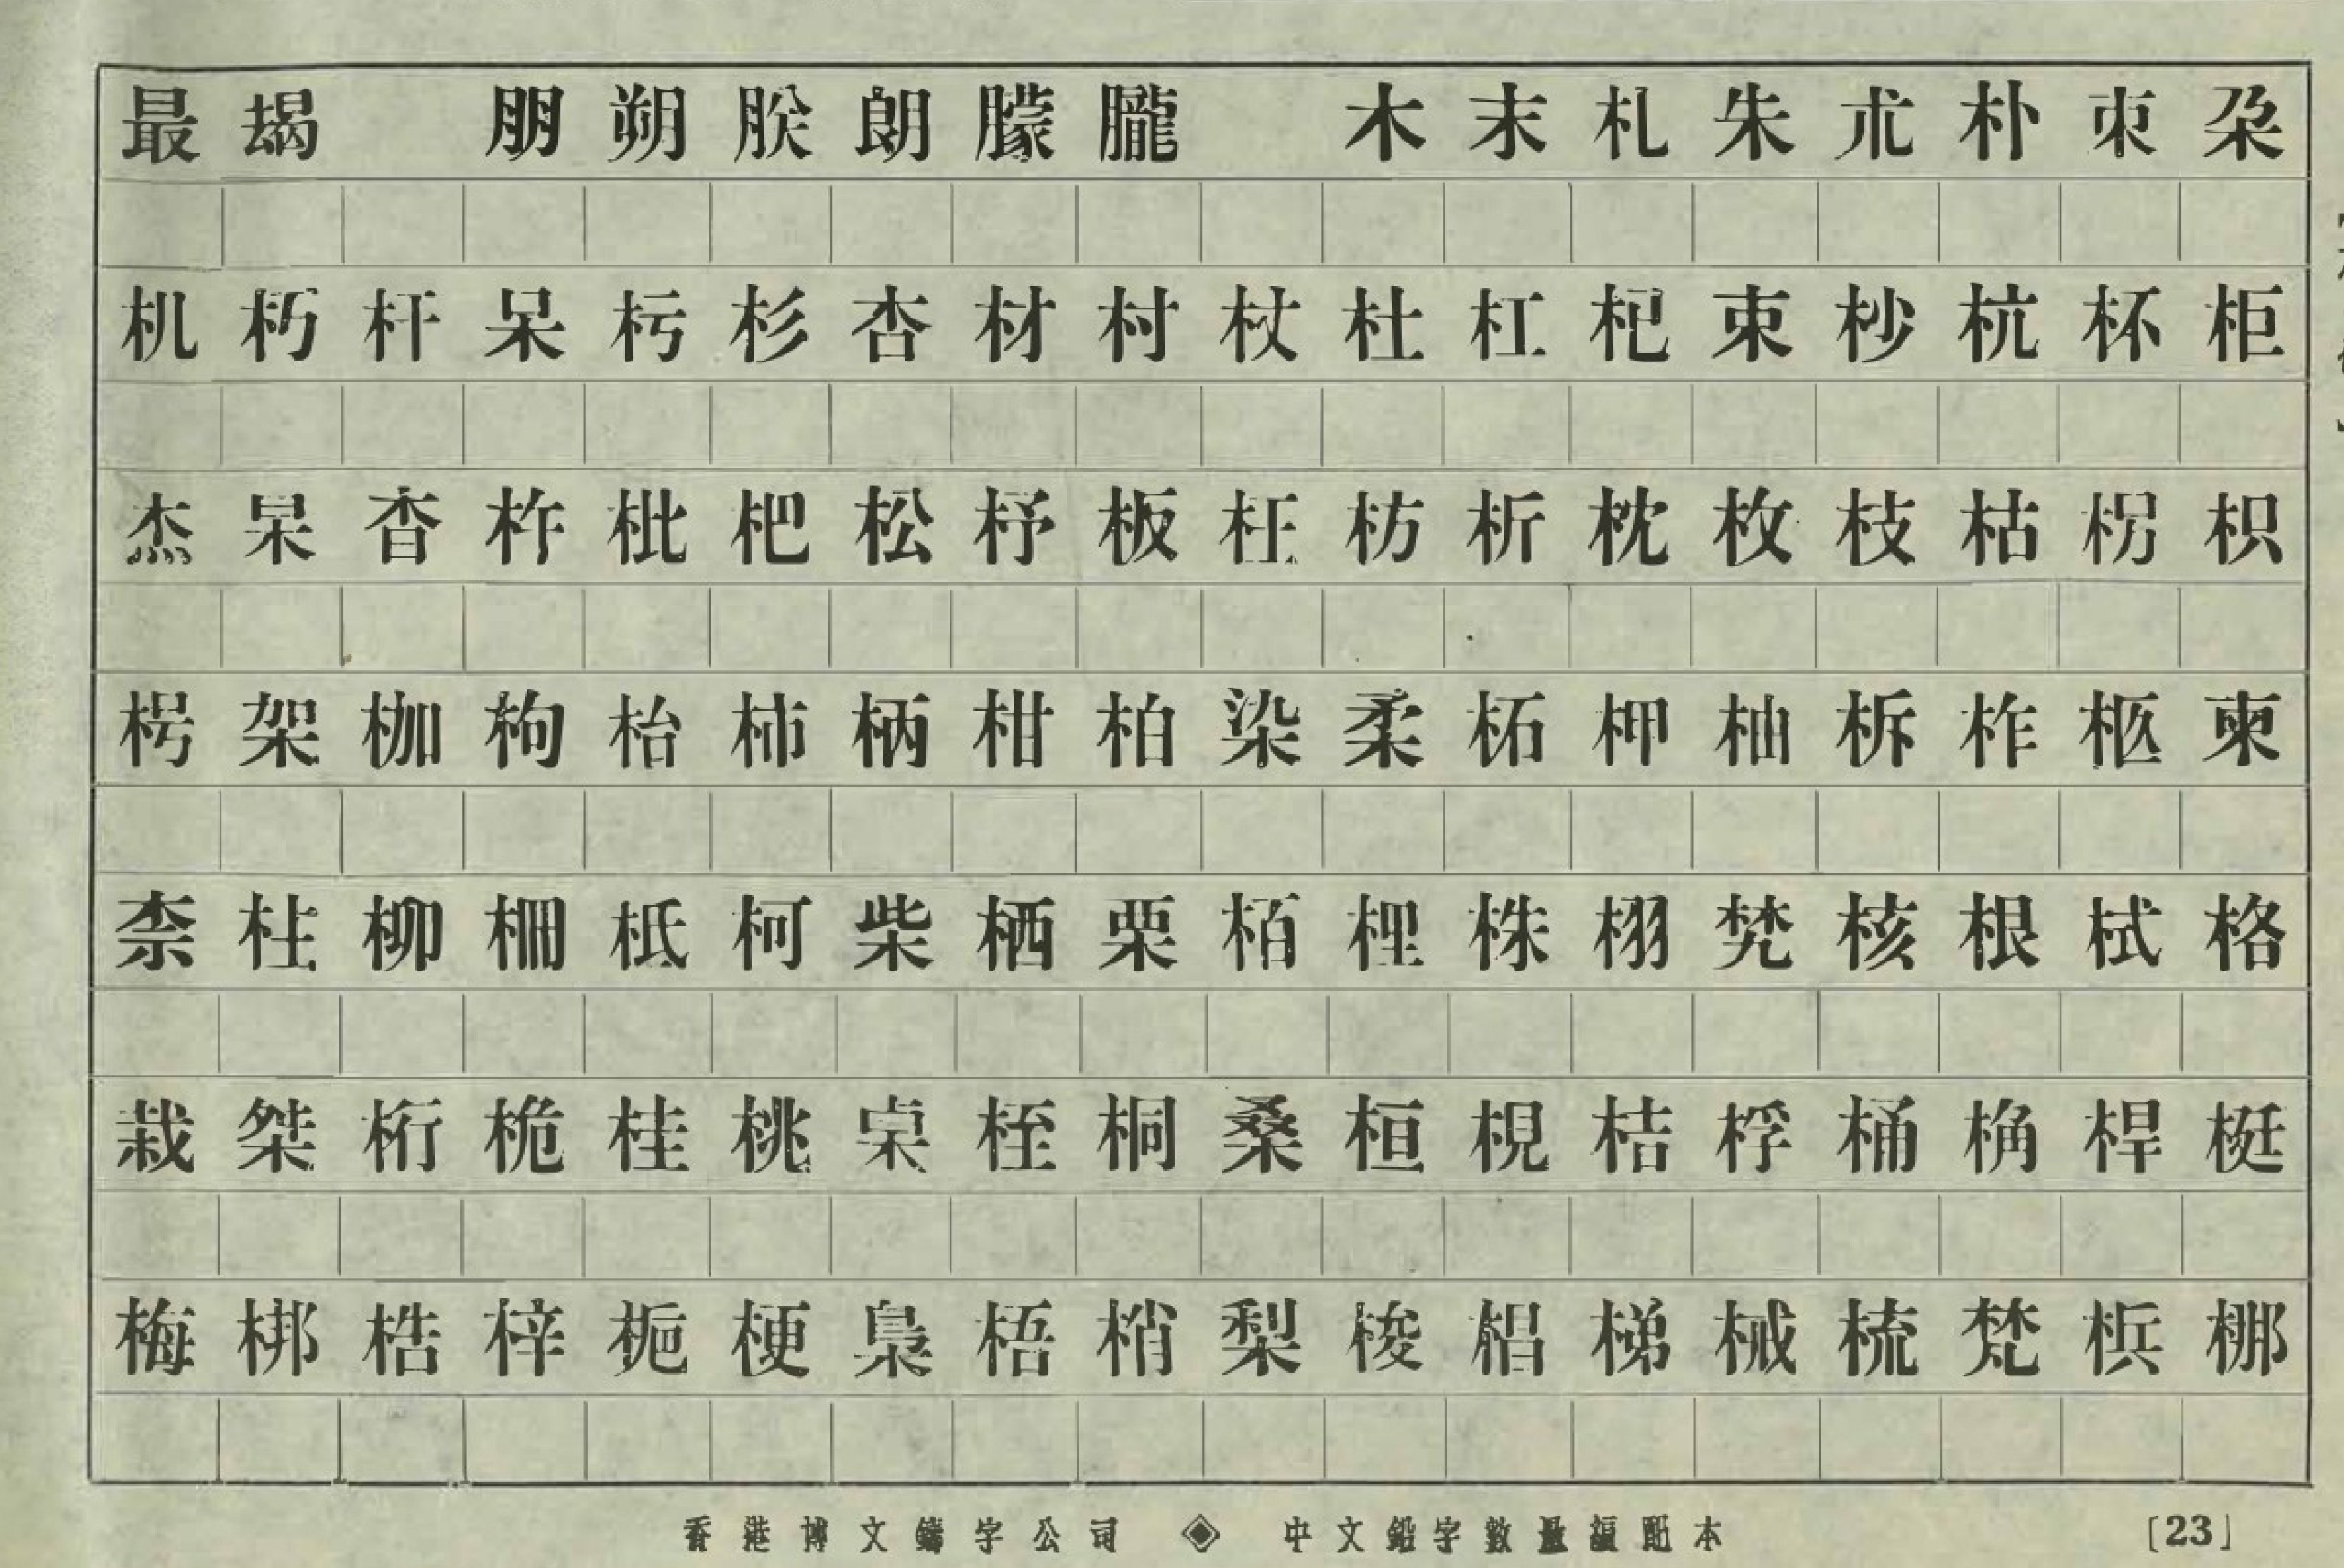 最 朅 朋 朔 朕 朗 朦 朧 木 末 札 朱 朮 朴 朿 朶
机 朽 杆 呆 杇 杉 杏 材 村 杖 杜 杠 杞 束 杪 杭 杯 柜
杰 杲 杳 杵 枇 杷 松 杼 板 枉 枋 析 枕 枚 枝 枯 枴 枳
枵 架 枷 枸 枱 柿 柄 柑 柏 染 柔 柘 柙 柚 柝 柞 柩 柬
柰 柱 柳 柵 柢 柯 柴 栖 栗 栢 株 栩 核 根 栻 格
栽 桀 桁 桅 桂 桃 桎 桐 桑 桓 梘 桔 桴 桶 桷 桿 梃
梅 梆 梏 梓 梔 梗 梟 梧 梢 梨 梭 梯 械 梳 梵 梹 梛
香港博文鑄字公司 ◈ 中文鉛字數量編配本 [23]